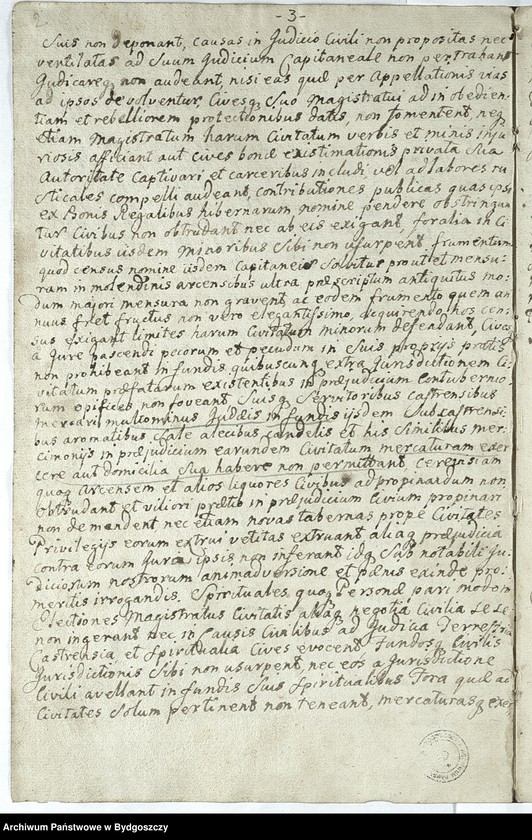 2
-3-
Suis non deponant, causas in Judicio Civili non propositas nec
ventilatas ad Suum Judicium Capitaneale non pertrahant
Judicareq non audeant, nisi eas quæ per Appellationis vias
ad ipsos devolventur, Civesq Suo Magistratui ad in obedien-
tiam et rebelliorem protectionibus datis, non fomentent, neq
Etiam Magistratum harum Civitatum verbis et minis inju
riosis afficiant aut cives bonæ existimationis privata Sua
Autoritate Captivari et carceribus includi, vel ad labores ru
sticales compelli audeant, contributiones publicas quas ipsi
ex Bonis Regalibus hibernarum nomine pendere obstringun
tur Civibus non obtrudant nec ab eis exigant, foralia in Ci
vitatibus iisdem Minoribus Sibi non usurpent, frumentum
quod census nomine iisdem Capitaneis Solvitur prout et mensu-
ram in molendinis arcensibus ultra præscriptum antiquitus mo-
dum majori mensura non gravent ac eodem frumento quem an
nuus fert fructus non vero elegantissimo, acquirendo, hos cen
sus exigant limites harum Civitatum minorum defendant, Cives
a Jure pascendi pecorum et pecudum in Suis proprys pratis
non prohibeant in fundis quibuscunq extra Jurisdictionem Ci
vitatum præfatarum existentibus in præjudicium Contuberno-
rum opifices non foveant Suisq Servitoribus castrensibus
mercari multominus Judæis in fundis ijsdem Subcastrensi-
bus aromatibus, Sale alecibus candelis et his Similibus mer-
cimonijs in præjudicium earundem Civitatum mercaturam exer
cere aut domicilia Sua habere non permittant, cerevisiam
quoq Arcensem et alios liquores Civibus ad propinandum non
obtrudant et viliori prætio in præjudicium Civium propinari
non demandent nec etiam novas tabernas prope Civitates
Privilegijs eorum extrui vetitas extruant aliaq præjudicia
contra eorum Jura ipsis non inferant idq Sub notabili Ju
diciorum nostrorum animadversione et pænis exinde pro-
meritis irrogandis. Spirituales quoq Personæ pari modo in
Electiones Magistratus Civitatis aliaq negotia Civilia Se Se
non ingerant nec in Causis Civilibus ad Judicia Terrestria
Castrensia et Spiritualia Cives evocent, fundosq Civilis
Jurisdictionis Sibi non usurpent, nec eos a Jurisdictione
Civili avellant in fundis Suis Spiritualibus Fora quæ ad
Civitates Solum pertinent non teneant, mercaturasq exer
Archiwum Państwowe w Bydgoszczy